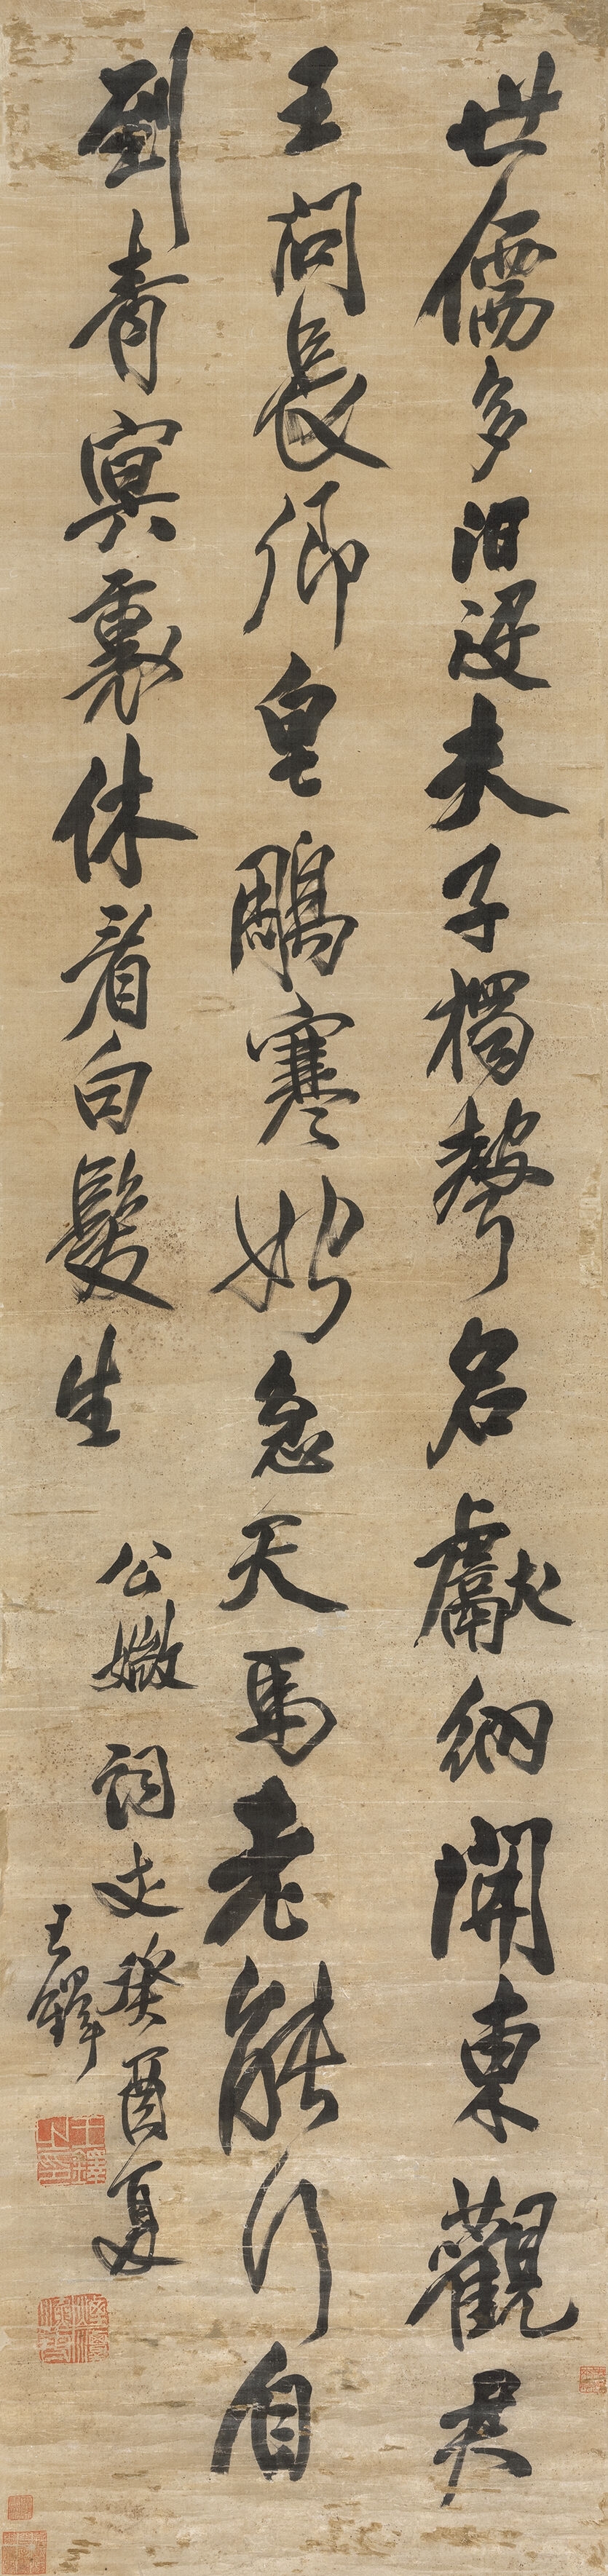 世儒多汨没夫子獨聲名獻納開東觀君
王問長卿皂鵰寒始急天馬老能行自
到青冥裏休看白髮生
公㜫詞丈癸酉夏
王鐸
王鐸之印